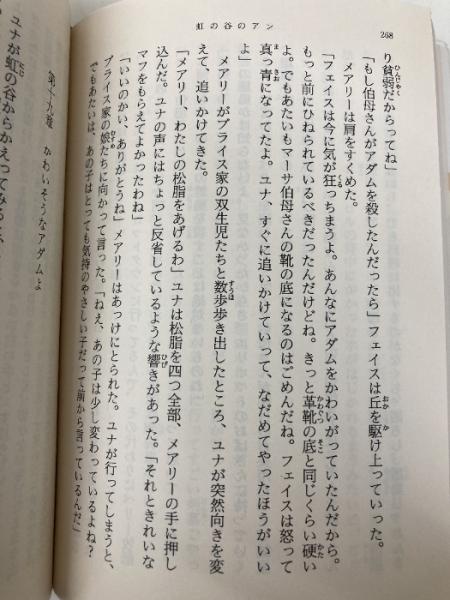 268
虹の谷のアン
り貧弱だからってね」
「もし伯母さんがアダムを殺したんだったら」フェイスは丘を駆け上っていった。
メアリーは肩をすくめた。
「フェイスは今に気が狂っちまうよ。あんなにアダムをかわいがっていたんだから。
もっと前にひねられているべきだったんだけどね。きっと革靴の底と同じくらい硬い
よ。でもあたいもマーサ伯母さんの靴の底になるのはごめんだね。フェイスは怒って
真っ青になってたよ。ユナ、すぐに追いかけていって、なだめてやったほうがいい
よ」
メアリーがブライス家の双生児たちと数歩歩き出したところ、ユナが突然向きを変
えて、追いかけてきた。
「メアリー、わたしの松脂をあげるわ」ユナは松脂を四つ全部、メアリーの手に押し
込んだ。ユナの声にはちょっと反省しているような響きがあった。「それときれいな
マフをもらえてよかったわね」
「いいのかい、ありがとうね」メアリーはあっけにとられた。ユナが行ってしまうと、
ブライス家の娘たちに向かって言った。「ねえ、あの子は少し変わっているよね？
でもあたいは、あの子はとっても気持のやさしい子だって前から言っているんだ」
第十九章　かわいそうなアダムよ
ユナが虹の谷からかえってみると、